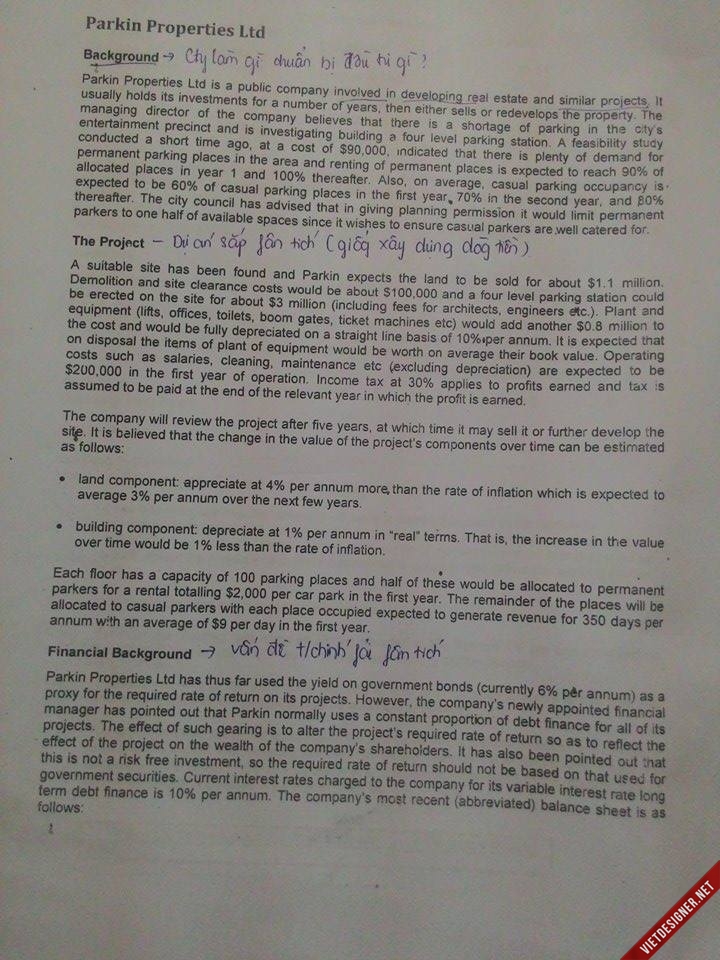 Parkin Properties Ltd
Background → Cty làm gì chuẩn bị đầu tư gì?
Parkin Properties Ltd is a public company involved in developing real estate and similar projects. It
usually holds its investments for a number of years, then either sells or redevelops the property. The
managing director of the company believes that there is a shortage of parking in the city's
entertainment precinct and is investigating building a four level parking station. A feasibility study
conducted a short time ago, at a cost of $90,000, indicated that there is plenty of demand for
permanent parking places in the area and renting of permanent places is expected to reach 90% of
allocated places in year 1 and 100% thereafter. Also, on average, casual parking occupancy is
expected to be 60% of casual parking places in the first year, 70% in the second year, and 80%
thereafter. The city council has advised that in giving planning permission it would limit permanent
parkers to one half of available spaces since it wishes to ensure casual parkers are well catered for.
The Project – Dự án sắp fân tích (giống xây dựng dòng tiền)
A suitable site has been found and Parkin expects the land to be sold for about $1.1 million.
Demolition and site clearance costs would be about $100,000 and a four level parking station could
be erected on the site for about $3 million (including fees for architects, engineers etc.). Plant and
equipment (lifts, offices, toilets, boom gates, ticket machines etc) would add another $0.8 million to
the cost and would be fully depreciated on a straight line basis of 10% per annum. It is expected that
on disposal the items of plant of equipment would be worth on average their book value. Operating
costs such as salaries, cleaning, maintenance etc (excluding depreciation) are expected to be
$200,000 in the first year of operation. Income tax at 30% applies to profits earned and tax is
assumed to be paid at the end of the relevant year in which the profit is earned.
The company will review the project after five years, at which time it may sell it or further develop the
site. It is believed that the change in the value of the project's components over time can be estimated
as follows:
• land component: appreciate at 4% per annum more than the rate of inflation which is expected to
average 3% per annum over the next few years.
• building component: depreciate at 1% per annum in "real" terms. That is, the increase in the value
over time would be 1% less than the rate of inflation.
Each floor has a capacity of 100 parking places and half of these would be allocated to permanent
parkers for a rental totalling $2,000 per car park in the first year. The remainder of the places will be
allocated to casual parkers with each place occupied expected to generate revenue for 350 days per
annum with an average of $9 per day in the first year.
Financial Background → vấn đề t/chính fải fân tích
Parkin Properties Ltd has thus far used the yield on government bonds (currently 6% per annum) as a
proxy for the required rate of return on its projects. However, the company's newly appointed financial
manager has pointed out that Parkin normally uses a constant proportion of debt finance for all of its
projects. The effect of such gearing is to alter the project's required rate of return so as to reflect the
effect of the project on the wealth of the company's shareholders. It has also been pointed out that
this is not a risk free investment, so the required rate of return should not be based on that used for
government securities. Current interest rates charged to the company for its variable interest rate long
term debt finance is 10% per annum. The company's most recent (abbreviated) balance sheet is as
follows:
VIETDESIGNER.NET